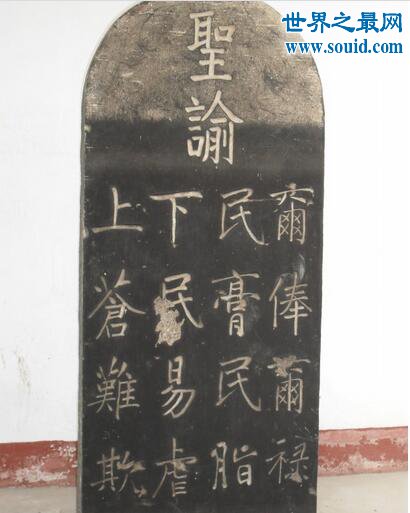 世界之最网
www.souid.com
聖諭
爾俸爾祿
民膏民脂
下民易虐
上蒼難欺